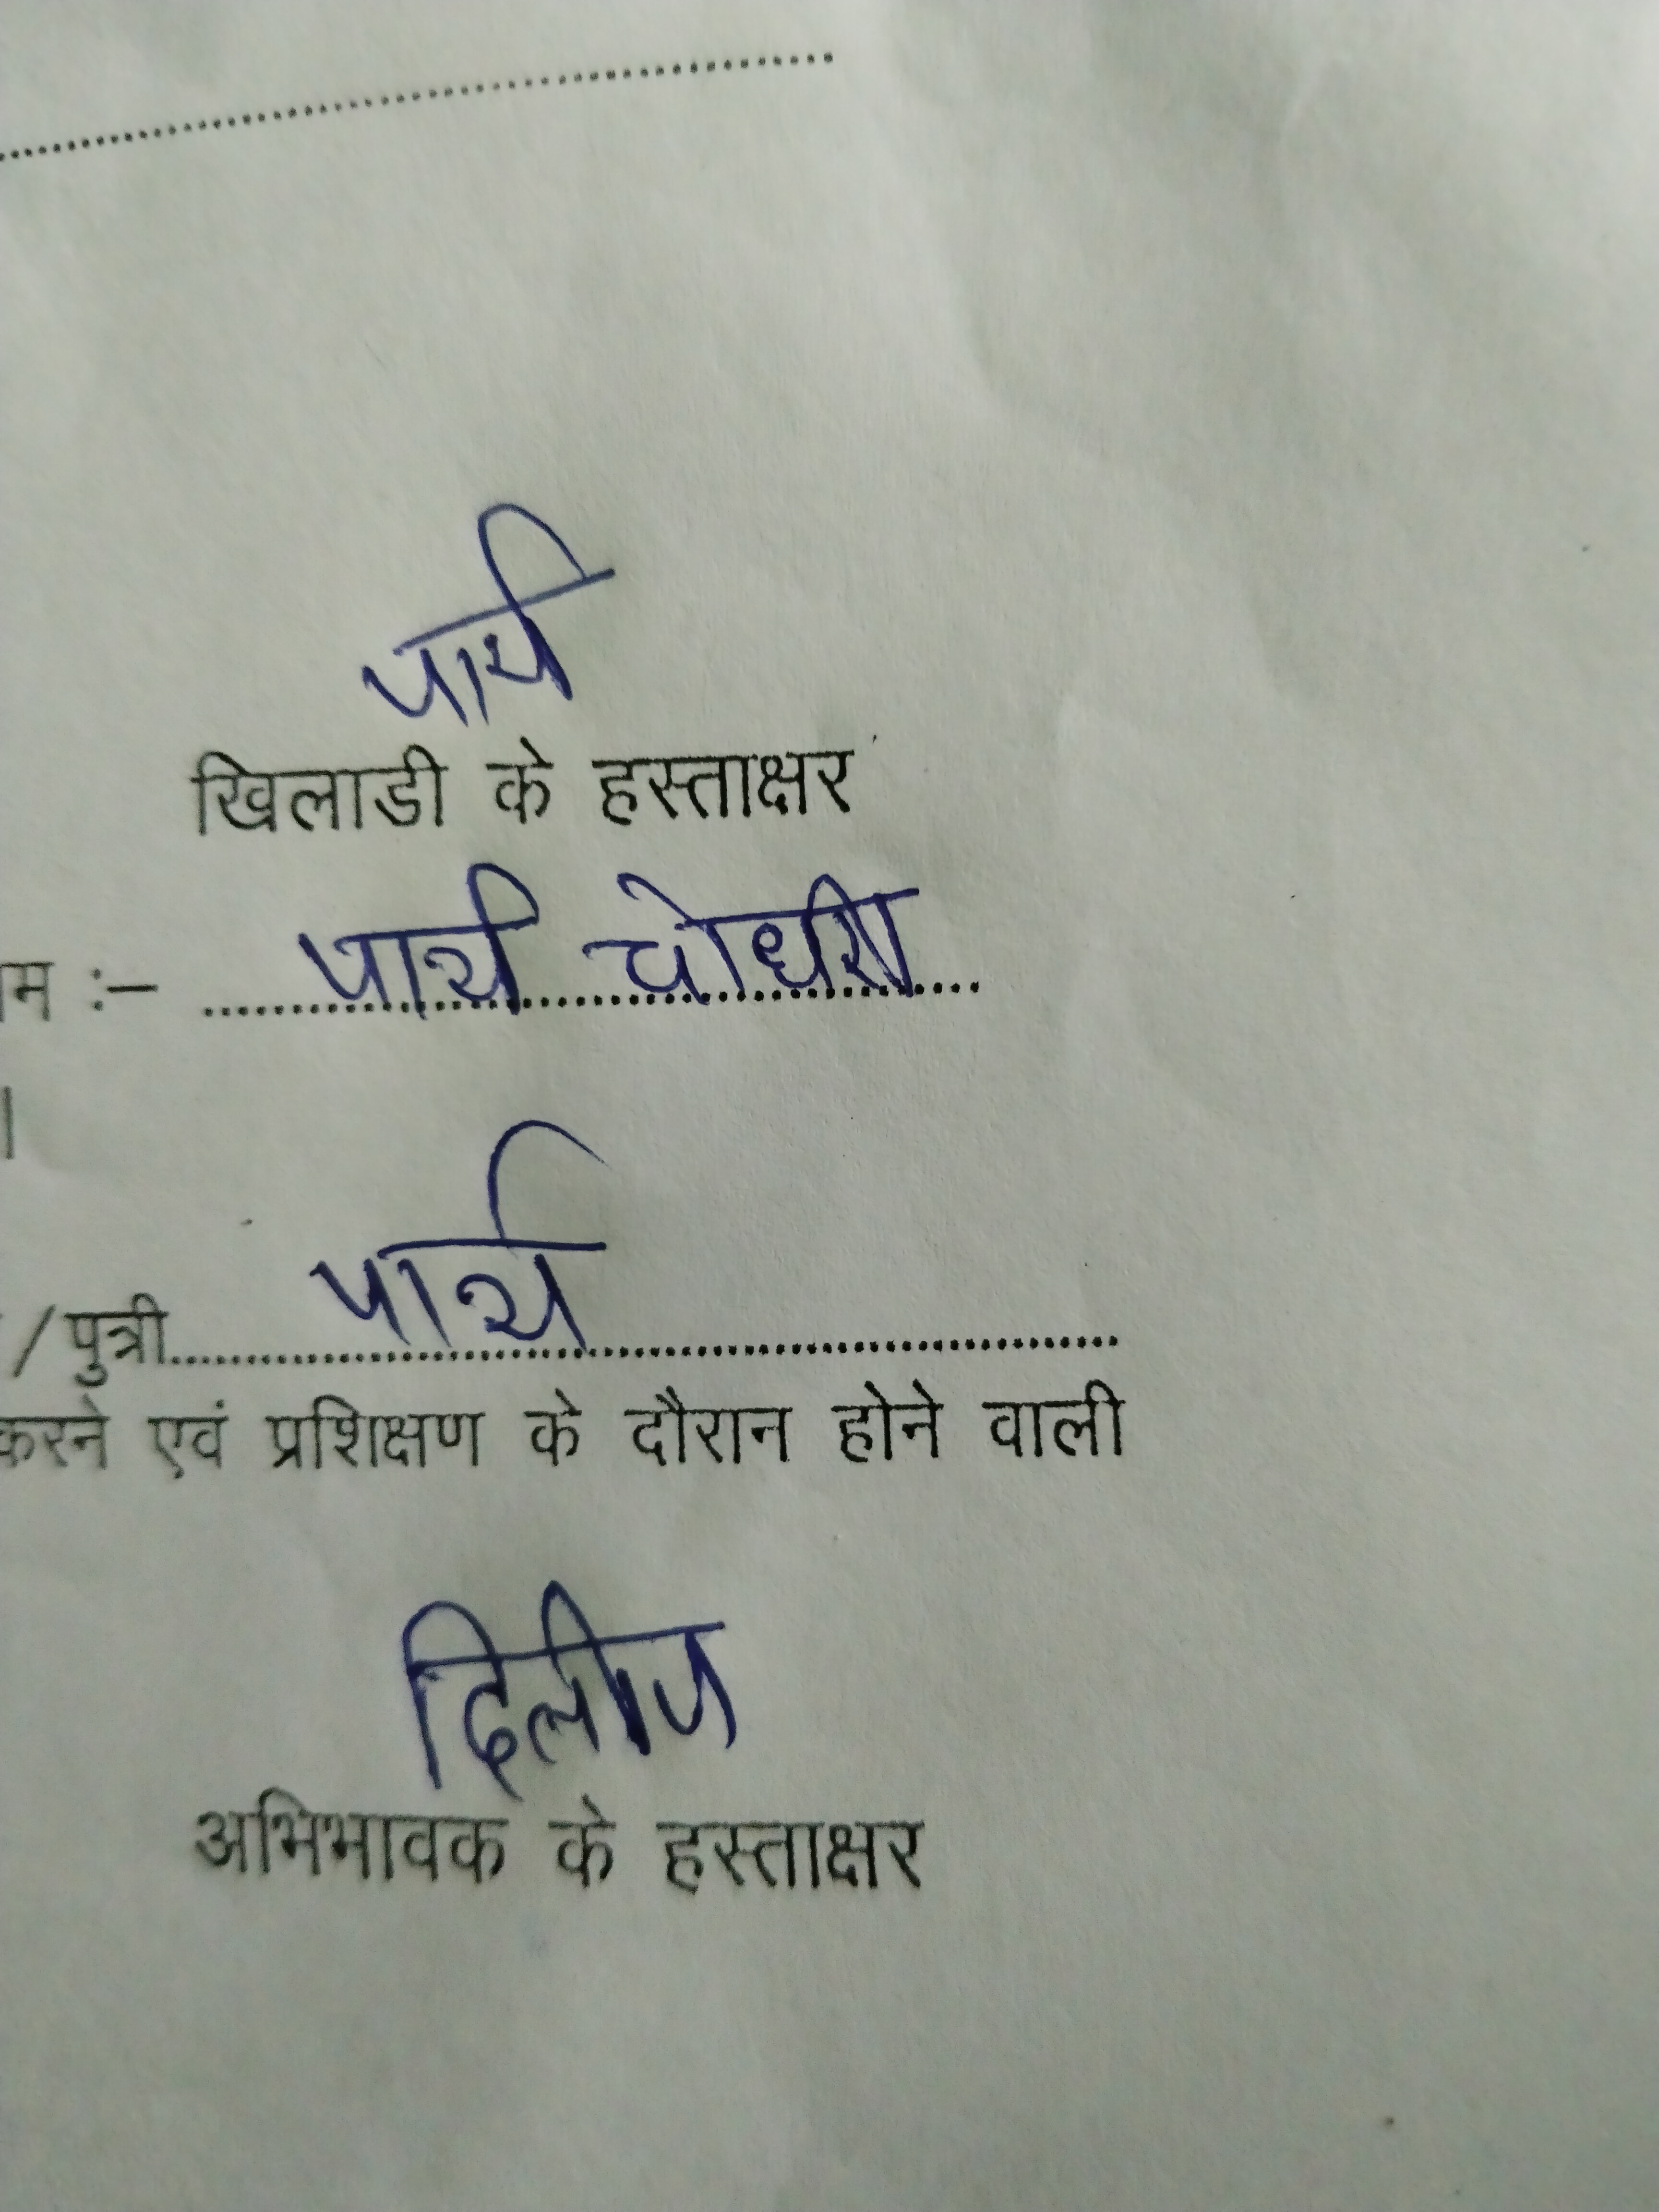 पार्थ
खिलाडी के हस्ताक्षर
म :– पार्थ चोधरी
।
/ पुत्री पार्थ
करने एवं प्रशिक्षण के दौरान होने वाली
दिलीप
अभिभावक के हस्ताक्षर